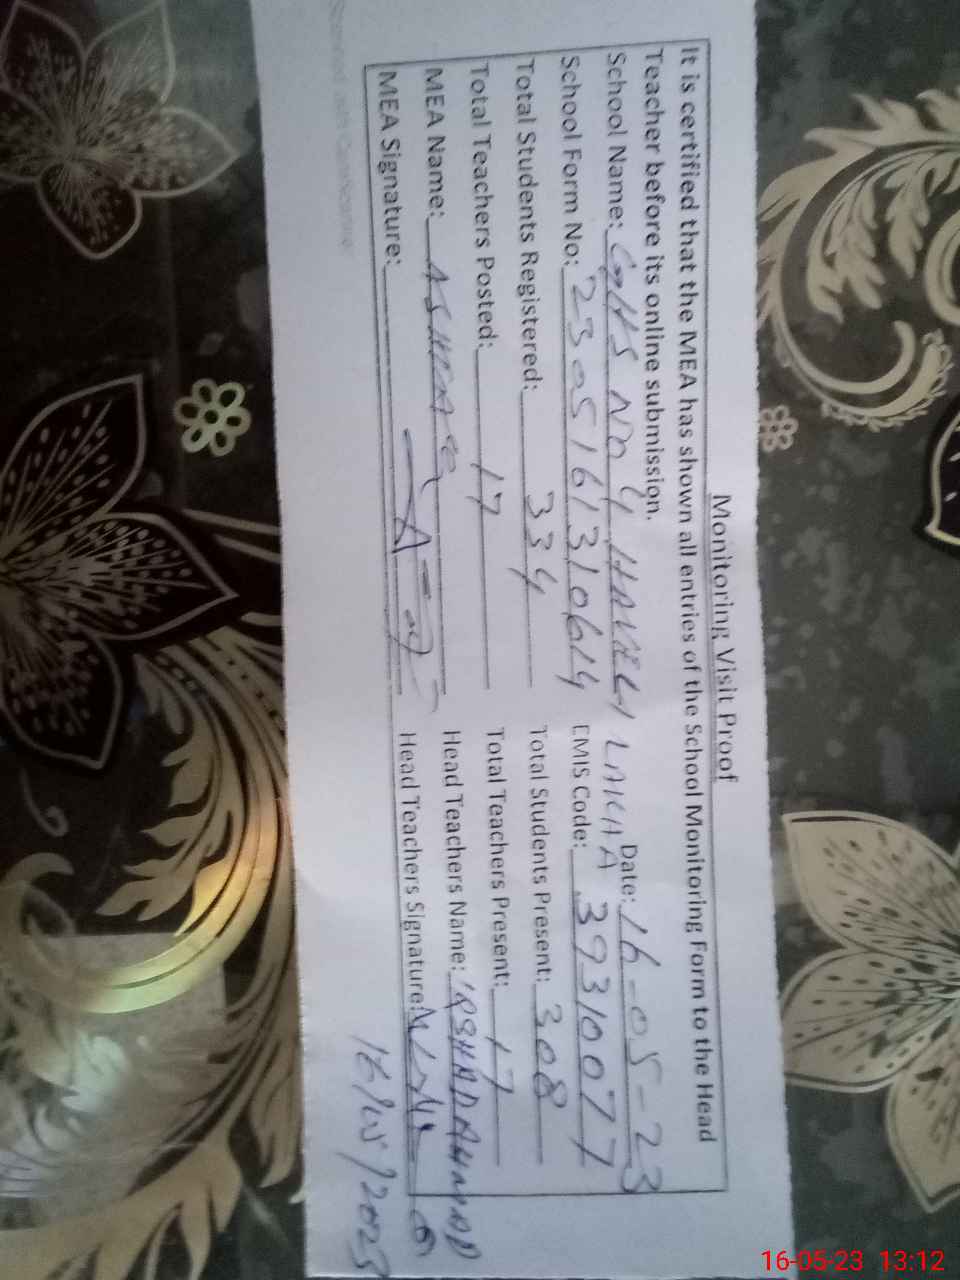 Monitoring Visit Proof
It is certified that the MEA has shown all entries of the School Monitoring Form to the Head
Teacher before its online submission.
Date: 16-05-23
School Name: GGHS NO 4 HAVELI LAKHA
School Form No: 2305161310614 EMIS Code: 39310077
Total Students Registered: 334 Total Students Present: 308
Total Teachers Posted: 17 Total Teachers Present: 17
MEA Name: Head Teachers Name: IRSHAD AHMAD
MEA Signature: Head Teachers Signature:
16/05/2023
16-05-23 13:12